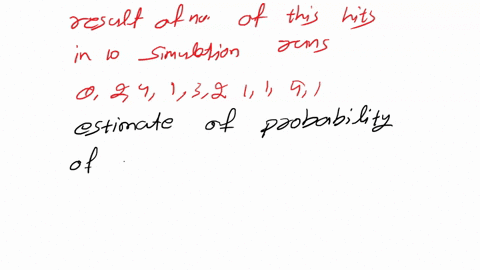 result of no of this hits
in 10 simulation runs
0, 2, 4, 1, 3, 2 1, 1, 5, 1
estimate of probability
of